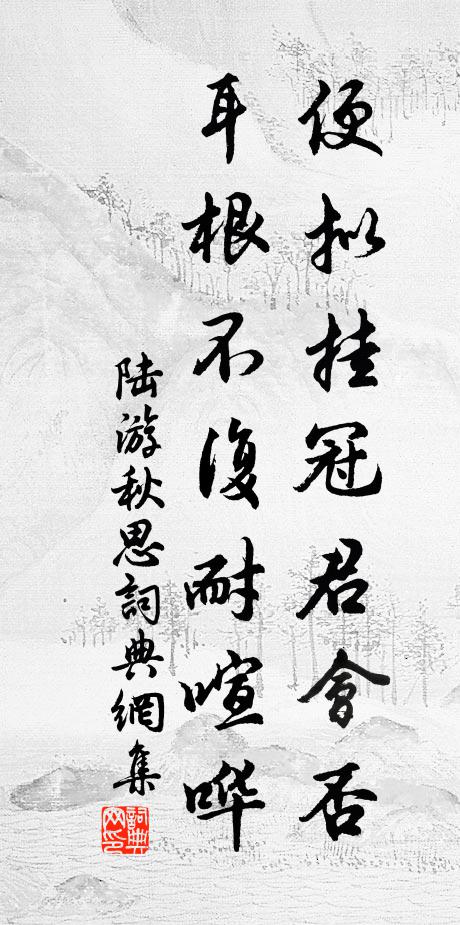 便拟挂冠君會否
耳根不復耐喧哗
陆游秋思詞典網集
詞典网印